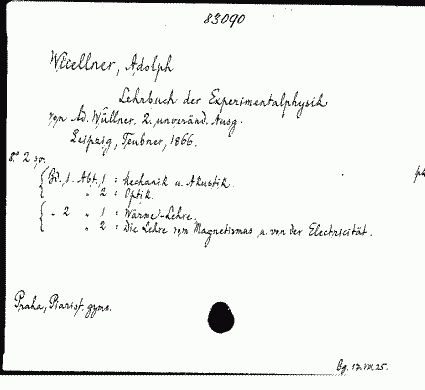 83090
Wüllner, Adolph
Lehrbuch der Experimentalphysik
von Ad. Wüllner. 2. unveränd. Ausg.
Leipzig, Teubner, 1866.
8° 2 sv.
Bd. 1. Abt. 1 = Mechanik u. Akustik.
" 2 = Optik.
" 2 " 1 = Wärme-Lehre.
" 2 = Die Lehre vom Magnetismus u. von der Electricität.
Praha, Piarist. gymn.